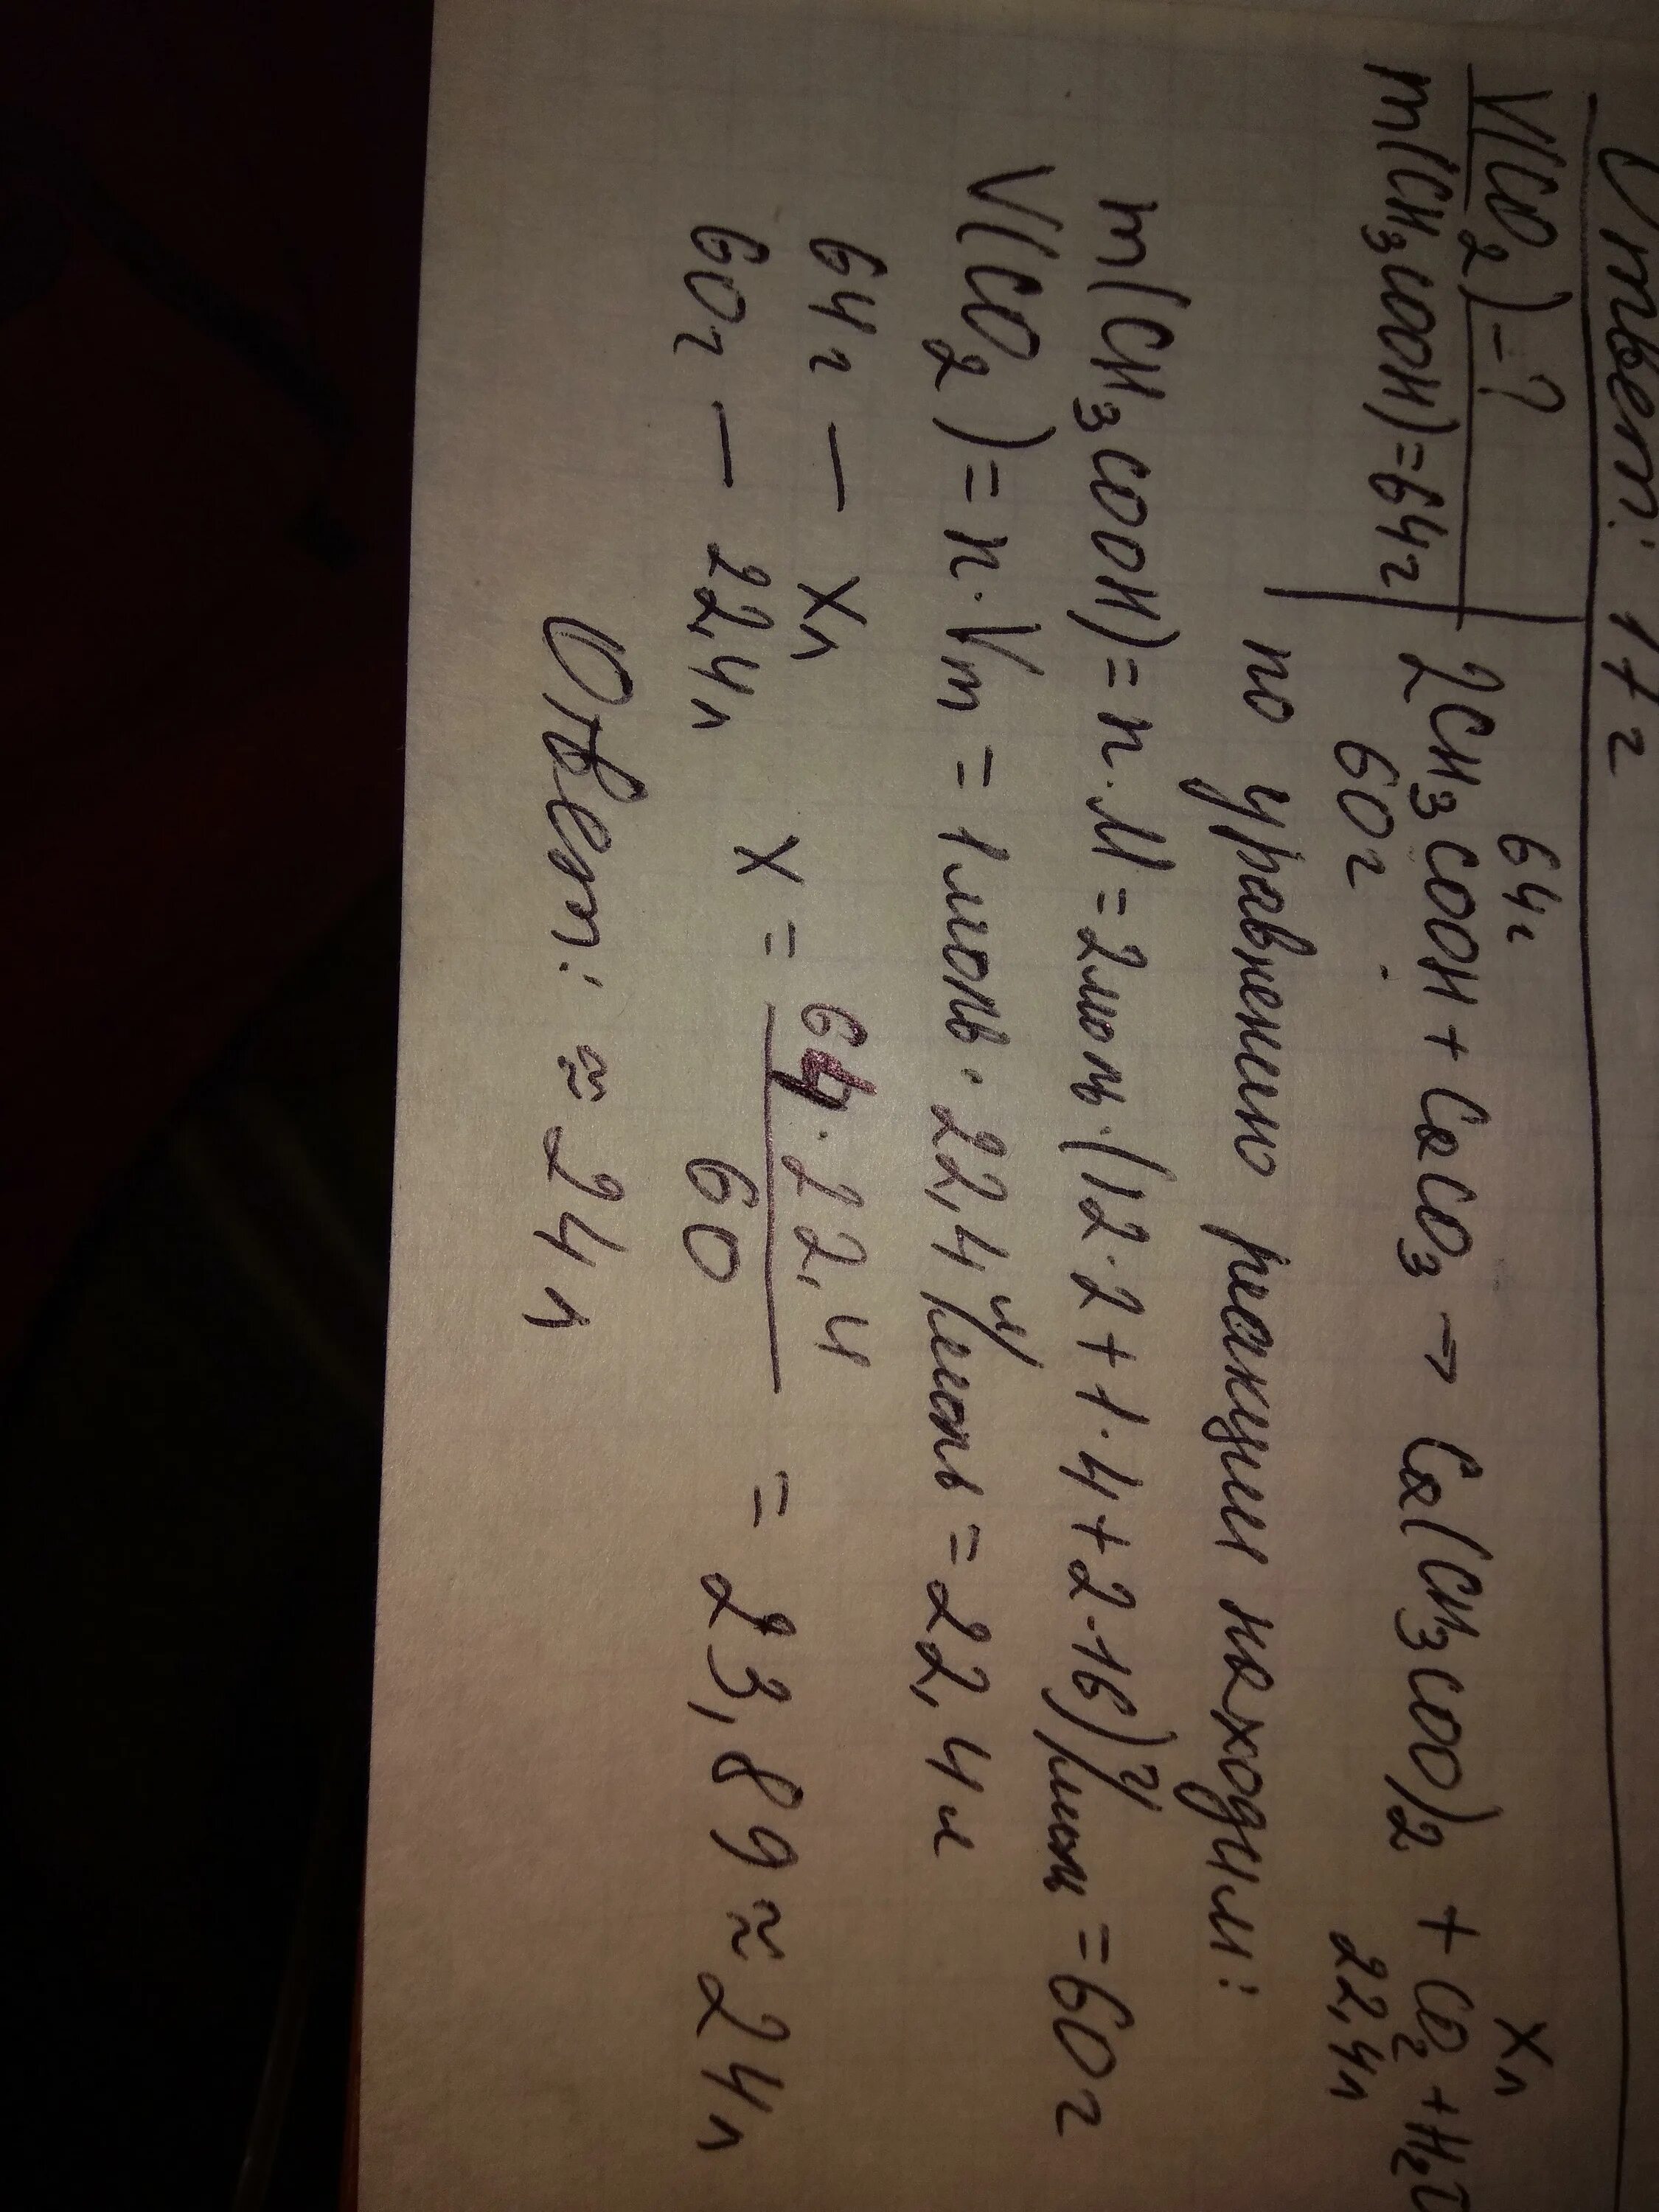 Ответ: 17 г
V(CO2)-?
m(CH3COOH)=64г
64г xл
2CH3COOH + CaCO3 → Ca(CH3COO)2 + CO2 + H2O
60г 22,4л
по уравнению реакции находим:
m(CH3COOH)=n·M=2моль·(12·2+1·4+2·16)г/моль=60г
V(CO2)=n·Vm=1моль·22,4л/моль=22,4л
64г — xл
60г — 22,4л
x = 64·22,4 / 60 = 23,89≈24л
Ответ: ≈24л